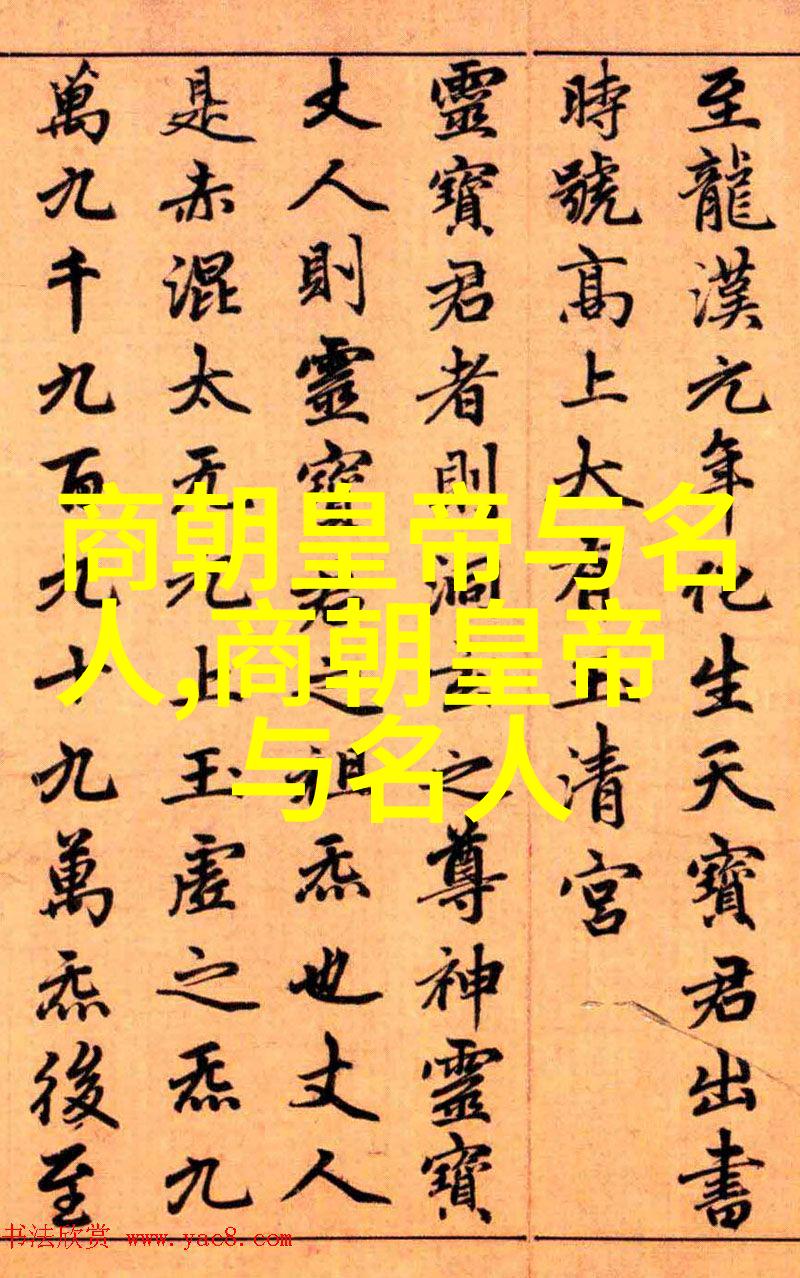 至龍漢元年化生天寶君出書
時號高上大有玉清宮
靈寶君者則洞玄之尊神靈寶
丈人則靈寶君之祖炁也丈人
是赤混太无元上玉虛之炁九
萬九千九百九十九萬炁後至
商朝皇帝与名
人,商朝皇帝
与名人
书法欣赏 www.yac8.com